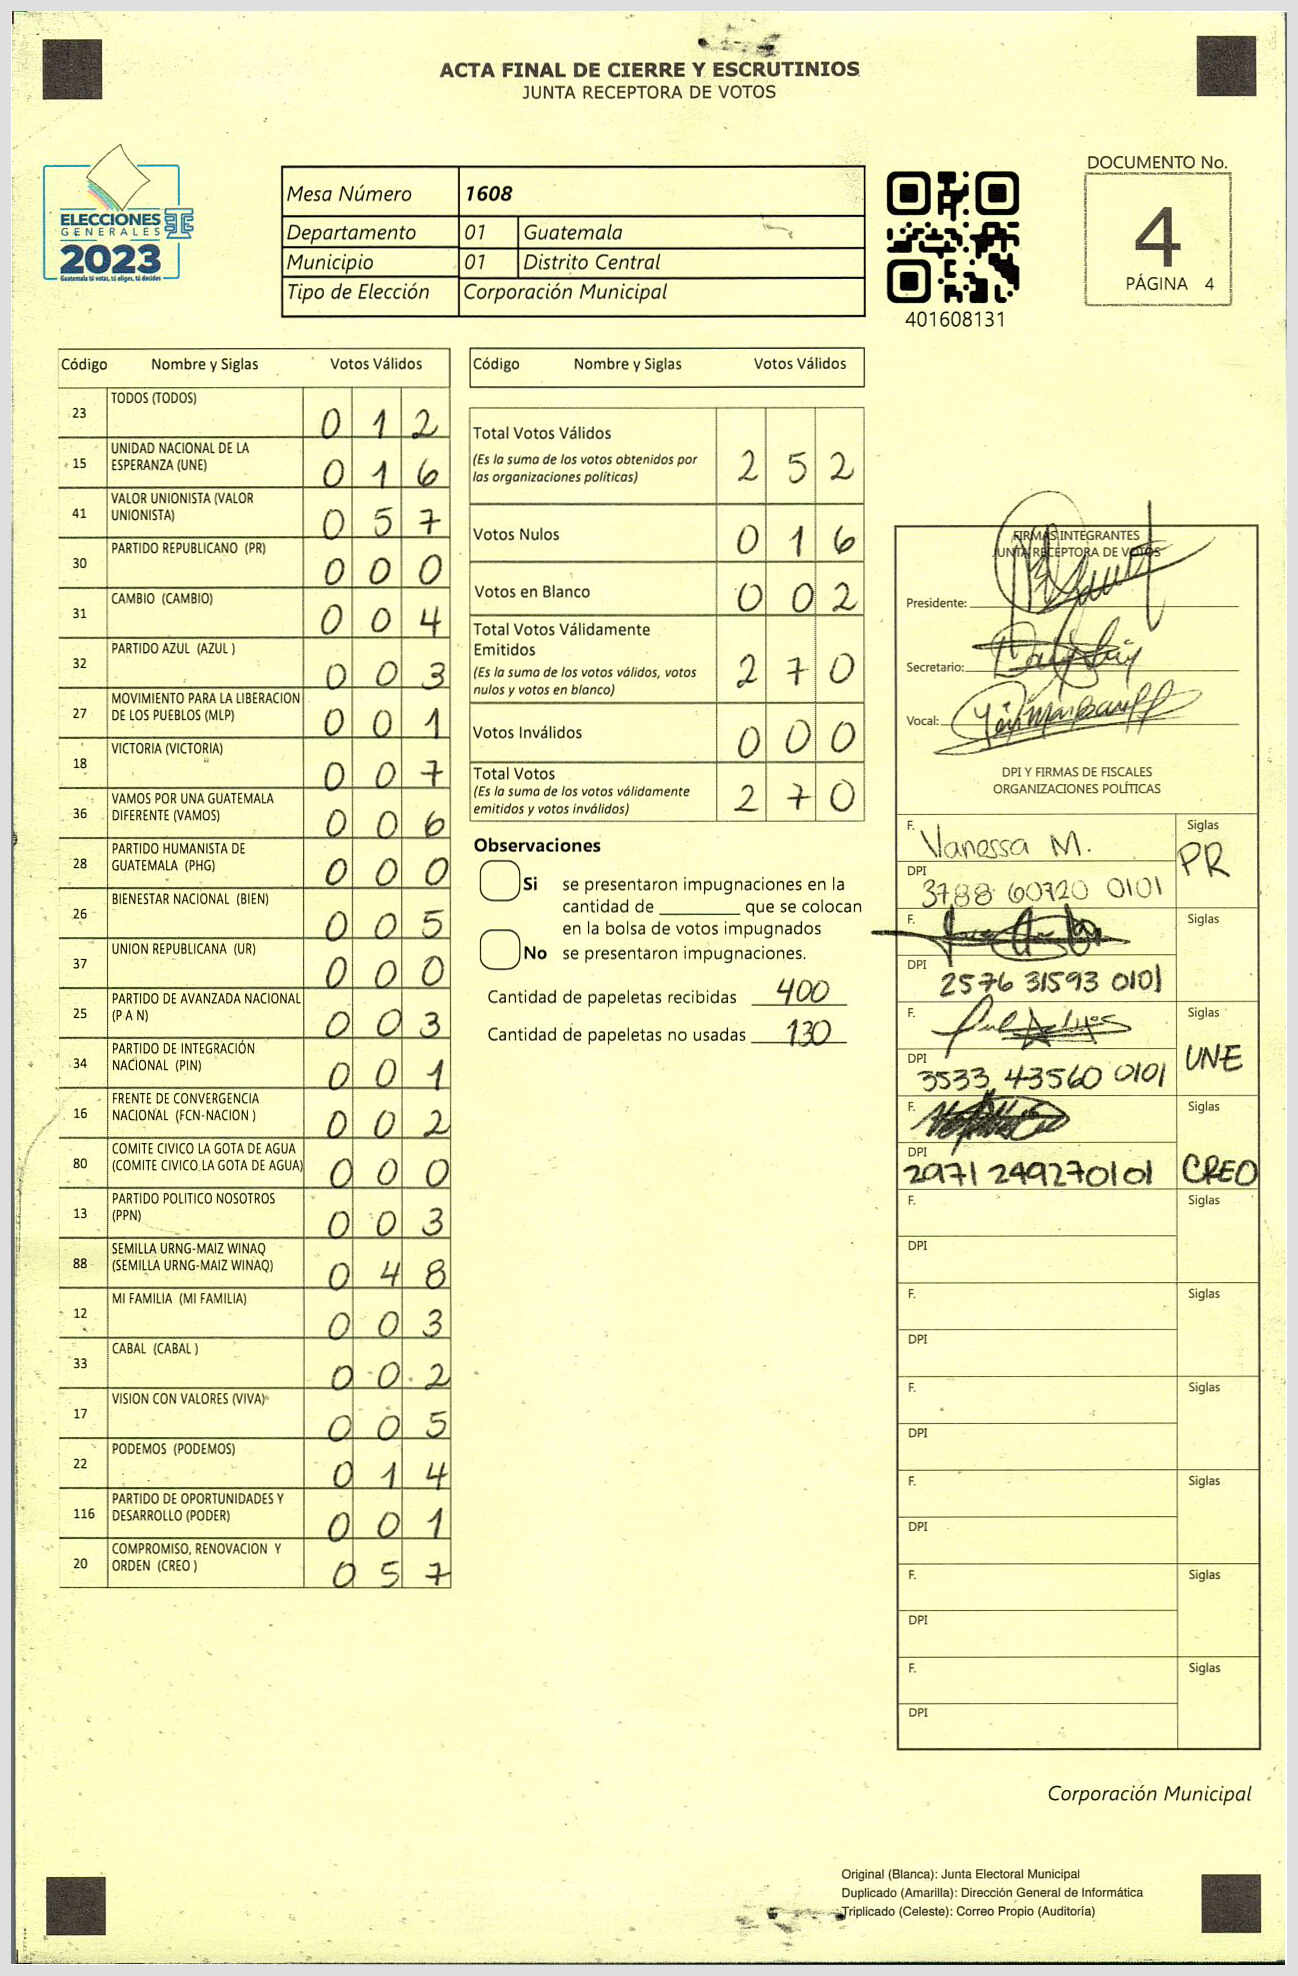 ACTA FINAL DE CIERRE Y ESCRUTINIOS
JUNTA RECEPTORA DE VOTOS
ELECCIONES
GENERALES
2023
Guatemala tú votas, tú eliges, tú decides
Mesa Número 1608
Departamento 01 Guatemala
Municipio 01 Distrito Central
Tipo de Elección Corporación Municipal
401608131
DOCUMENTO No.
4
PÁGINA 4
Código Nombre y Siglas Votos Válidos
23 TODOS (TODOS) 0 1 2
15 UNIDAD NACIONAL DE LA
ESPERANZA (UNE) 0 1 6
41 VALOR UNIONISTA (VALOR
UNIONISTA) 0 5 7
30 PARTIDO REPUBLICANO (PR) 0 0 0
31 CAMBIO (CAMBIO) 0 0 4
32 PARTIDO AZUL (AZUL ) 0 0 3
27 MOVIMIENTO PARA LA LIBERACION
DE LOS PUEBLOS (MLP) 0 0 1
18 VICTORIA (VICTORIA) 0 0 7
36 VAMOS POR UNA GUATEMALA
DIFERENTE (VAMOS) 0 0 6
28 PARTIDO HUMANISTA DE
GUATEMALA (PHG) 0 0 0
26 BIENESTAR NACIONAL (BIEN) 0 0 5
37 UNION REPUBLICANA (UR) 0 0 0
25 PARTIDO DE AVANZADA NACIONAL
(P A N) 0 0 3
34 PARTIDO DE INTEGRACIÓN
NACIONAL (PIN) 0 0 1
16 FRENTE DE CONVERGENCIA
NACIONAL (FCN-NACION ) 0 0 2
80 COMITE CIVICO LA GOTA DE AGUA
(COMITE CIVICO LA GOTA DE AGUA) 0 0 0
13 PARTIDO POLITICO NOSOTROS
(PPN) 0 0 3
88 SEMILLA URNG-MAIZ WINAQ
(SEMILLA URNG-MAIZ WINAQ) 0 4 8
12 MI FAMILIA (MI FAMILIA) 0 0 3
33 CABAL (CABAL ) 0 0 2
17 VISION CON VALORES (VIVA) 0 0 5
22 PODEMOS (PODEMOS) 0 1 4
116 PARTIDO DE OPORTUNIDADES Y
DESARROLLO (PODER) 0 0 1
20 COMPROMISO, RENOVACION Y
ORDEN (CREO ) 0 5 7
Código Nombre y Siglas Votos Válidos
Total Votos Válidos
(Es la suma de los votos obtenidos por
las organizaciones políticas) 2 5 2
Votos Nulos 0 1 6
Votos en Blanco 0 0 2
Total Votos Válidamente
Emitidos
(Es la suma de los votos válidos, votos
nulos y votos en blanco) 2 7 0
Votos Inválidos 0 0 0
Total Votos
(Es la suma de los votos válidamente
emitidos y votos inválidos) 2 7 0
Observaciones
Si se presentaron impugnaciones en la
cantidad de _________ que se colocan
en la bolsa de votos impugnados
No se presentaron impugnaciones.
Cantidad de papeletas recibidas 400
Cantidad de papeletas no usadas 130
FIRMAS INTEGRANTES
JUNTA RECEPTORA DE VOTOS
Presidente:
Secretario:
Vocal:
DPI Y FIRMAS DE FISCALES
ORGANIZACIONES POLÍTICAS
F. Vanessa M. Siglas PR
DPI 3788 60720 0101
F. Siglas
DPI 2576 31593 0101
F. Siglas UNE
DPI 3533 43560 0101
F. Siglas CREO
DPI 2971 24927 0101
F. Siglas
DPI
F. Siglas
DPI
F. Siglas
DPI
F. Siglas
DPI
F. Siglas
DPI
F. Siglas
DPI
Corporación Municipal
Original (Blanca): Junta Electoral Municipal
Duplicado (Amarilla): Dirección General de Informática
Triplicado (Celeste): Correo Propio (Auditoría)